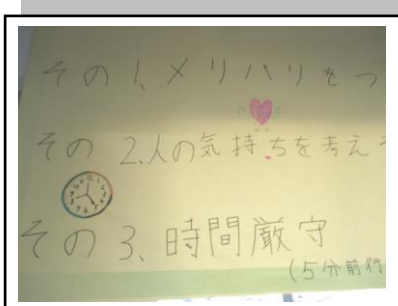 その1、メリハリをつ
その2.人の気持ちを考え
その3、時間厳守
(5分前行